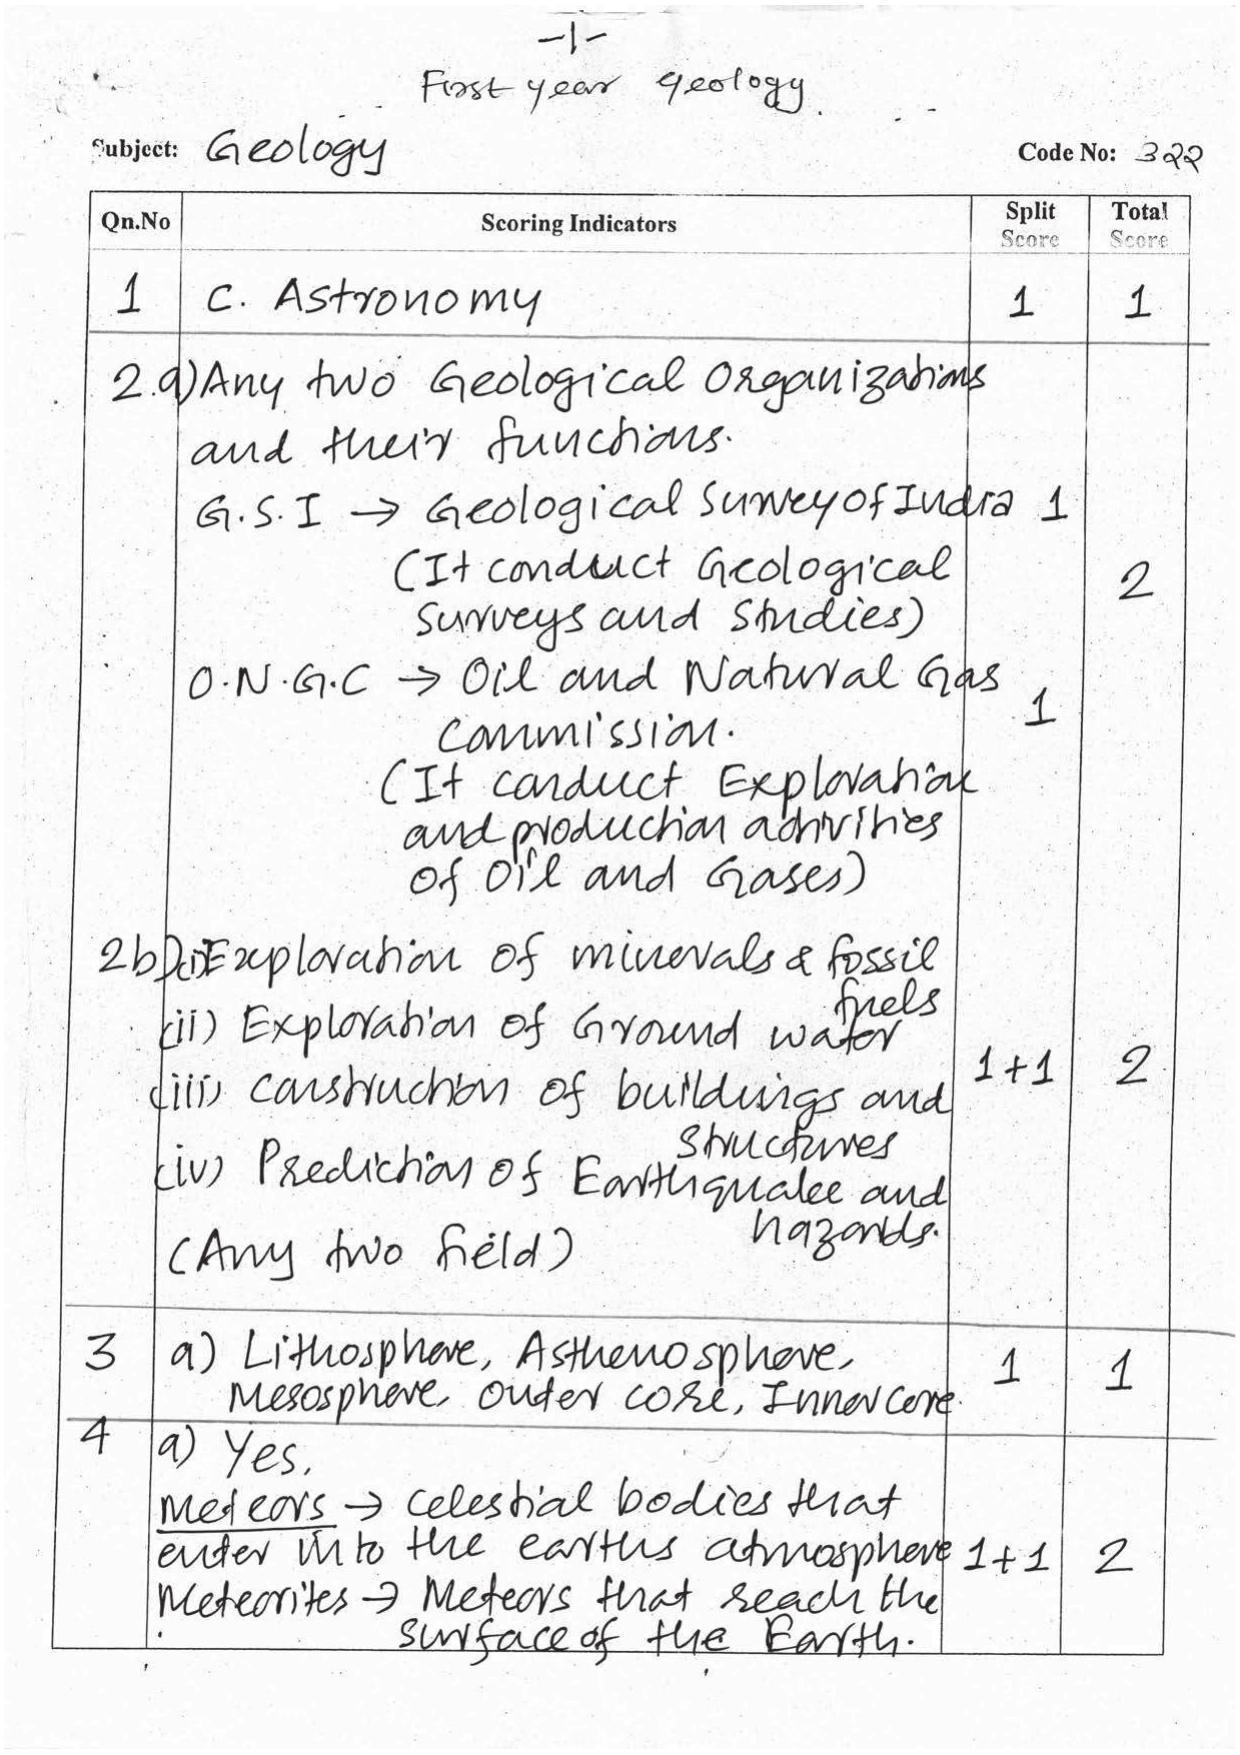 -1-
First year Geology.
Subject: Geology Code No: 322
Qn.No Scoring Indicators Split Score Total Score
1 C. Astronomy 1 1
2.a) Any two Geological Organizations
and their functions.
G.S.I → Geological Survey of India 1
(It conduct Geological
Surveys and Studies) 2
O.N.G.C → Oil and Natural Gas
Commission. 1
(It conduct Exploration
and production activities
of Oil and Gases)
2b) (i) Exploration of minerals & fossil
fuels
(ii) Exploration of Ground water
(iii) construction of buildings and 1+1 2
structures
(iv) Prediction of Earthquake and
hazards.
(Any two field)
3 a) Lithosphere, Asthenosphere,
Mesosphere, outer core, Inner core. 1 1
4 a) Yes.
Meteors → celestial bodies that
enter in to the earths atmosphere 1+1 2
Meteorites → Meteors that reach the
surface of the Earth.